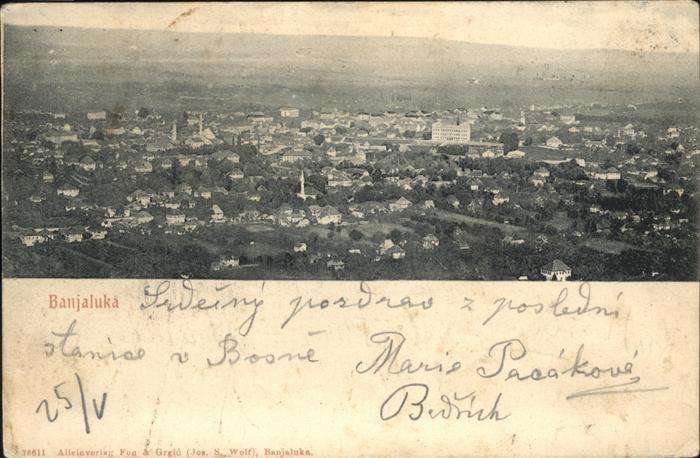 Banjaluka Srdečný pozdrav z poslední
stanice v Bosně Marie Pacáková
Bedřich
25/V
76611 Alleinverlag Fon & Grgić (Jos. S. Wolf), Banjaluka.